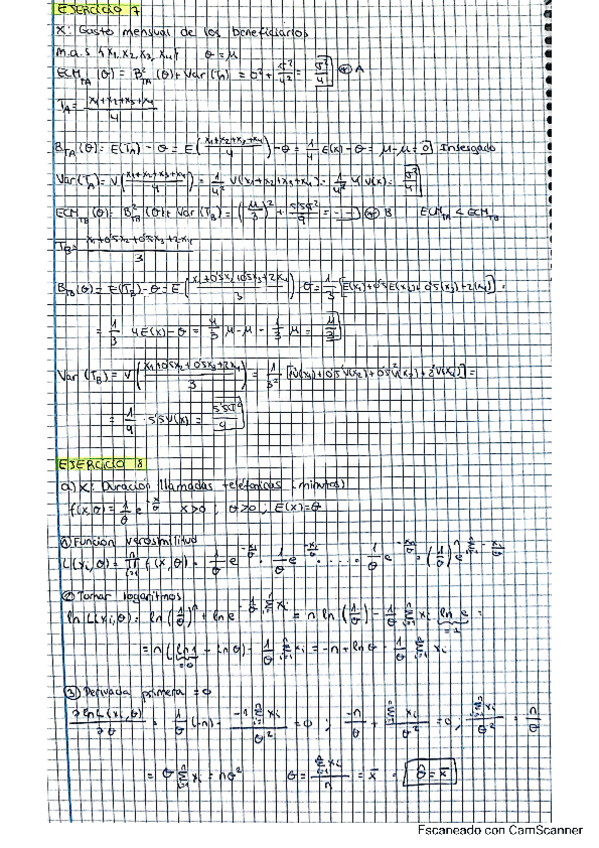 EJERCICIO 7
X: Gasto mensual de los beneficiarios
m.a.s {x1, x2, x3, x4} θ = μ
ECM_TA (θ) = B²_TA (θ) + Var (TA) = 0² + σ²/4 = σ²/4 → A
TA = (x1+x2+x3+x4)/4
B_TA (θ) = E(TA) - θ = E((x1+x2+x3+x4)/4) - θ = 1/4 · 4 E(x) - θ = μ - μ = 0 Insesgado
Var (TA) = V((x1+x2+x3+x4)/4) = 1/4² V(x1+x2+x3+x4) = 1/4² 4 V(x) = σ²/4
ECM_TB (θ) = B²_TB (θ) + Var (TB) = (μ/3)² + 5'5σ²/9 = → B ECM_TA < ECM_TB
TB = (x1+0'5x2+0'5x3+2x4)/3
B_TB (θ) = E(TB) - θ = E((x1+0'5x2+0'5x3+2x4)/3) - θ = 1/3 [E(x1)+0'5E(x2)+0'5(x3)+2(x4)] =
= 1/3 4E(x) - θ = 4/3 μ - μ = 1/3 μ = μ/3
Var (TB) = V((x1+0'5x2+0'5x3+2x4)/3) = 1/3² [V(x1)+0'5²V(x2)+0'5²V(x3)+2²V(x4)] =
= 1/9 · 5'5V(x) = 5'5σ²/9
EJERCICIO 8
a) X: Duración llamadas telefónicas (minutos)
f(x,θ) = 1/θ e^(-x/θ) x>0 ; θ>0 ; E(x)=θ
① Función verosimilitud
L(xi,θ) = ∏ f(x,θ) = 1/θ e^(-x1/θ) · 1/θ e^(-x2/θ) · ..... · 1/θ e^(-xn/θ) = (1/θ)^n e^(Σ -xi/θ)
② Tomar logaritmos
ln L(xi,θ) = ln (1/θ)^n + ln e^(-1/θ Σ xi) = n ln (1/θ) - 1/θ Σ xi ln e =
= n (ln 1 - ln θ) - 1/θ Σ xi = -n + ln θ - 1/θ Σ xi
③ Derivada primera = 0
∂ ln L(xi,θ)/∂θ = 1/θ (-n) - (-1 Σ xi)/θ² = 0 ; -n/θ + Σ xi/θ² = 0 ; Σ xi/θ² = n/θ
= θ Σ xi = nθ² θ = Σ xi/n = x̄ θ̂ = x̄
Escaneado con CamScanner